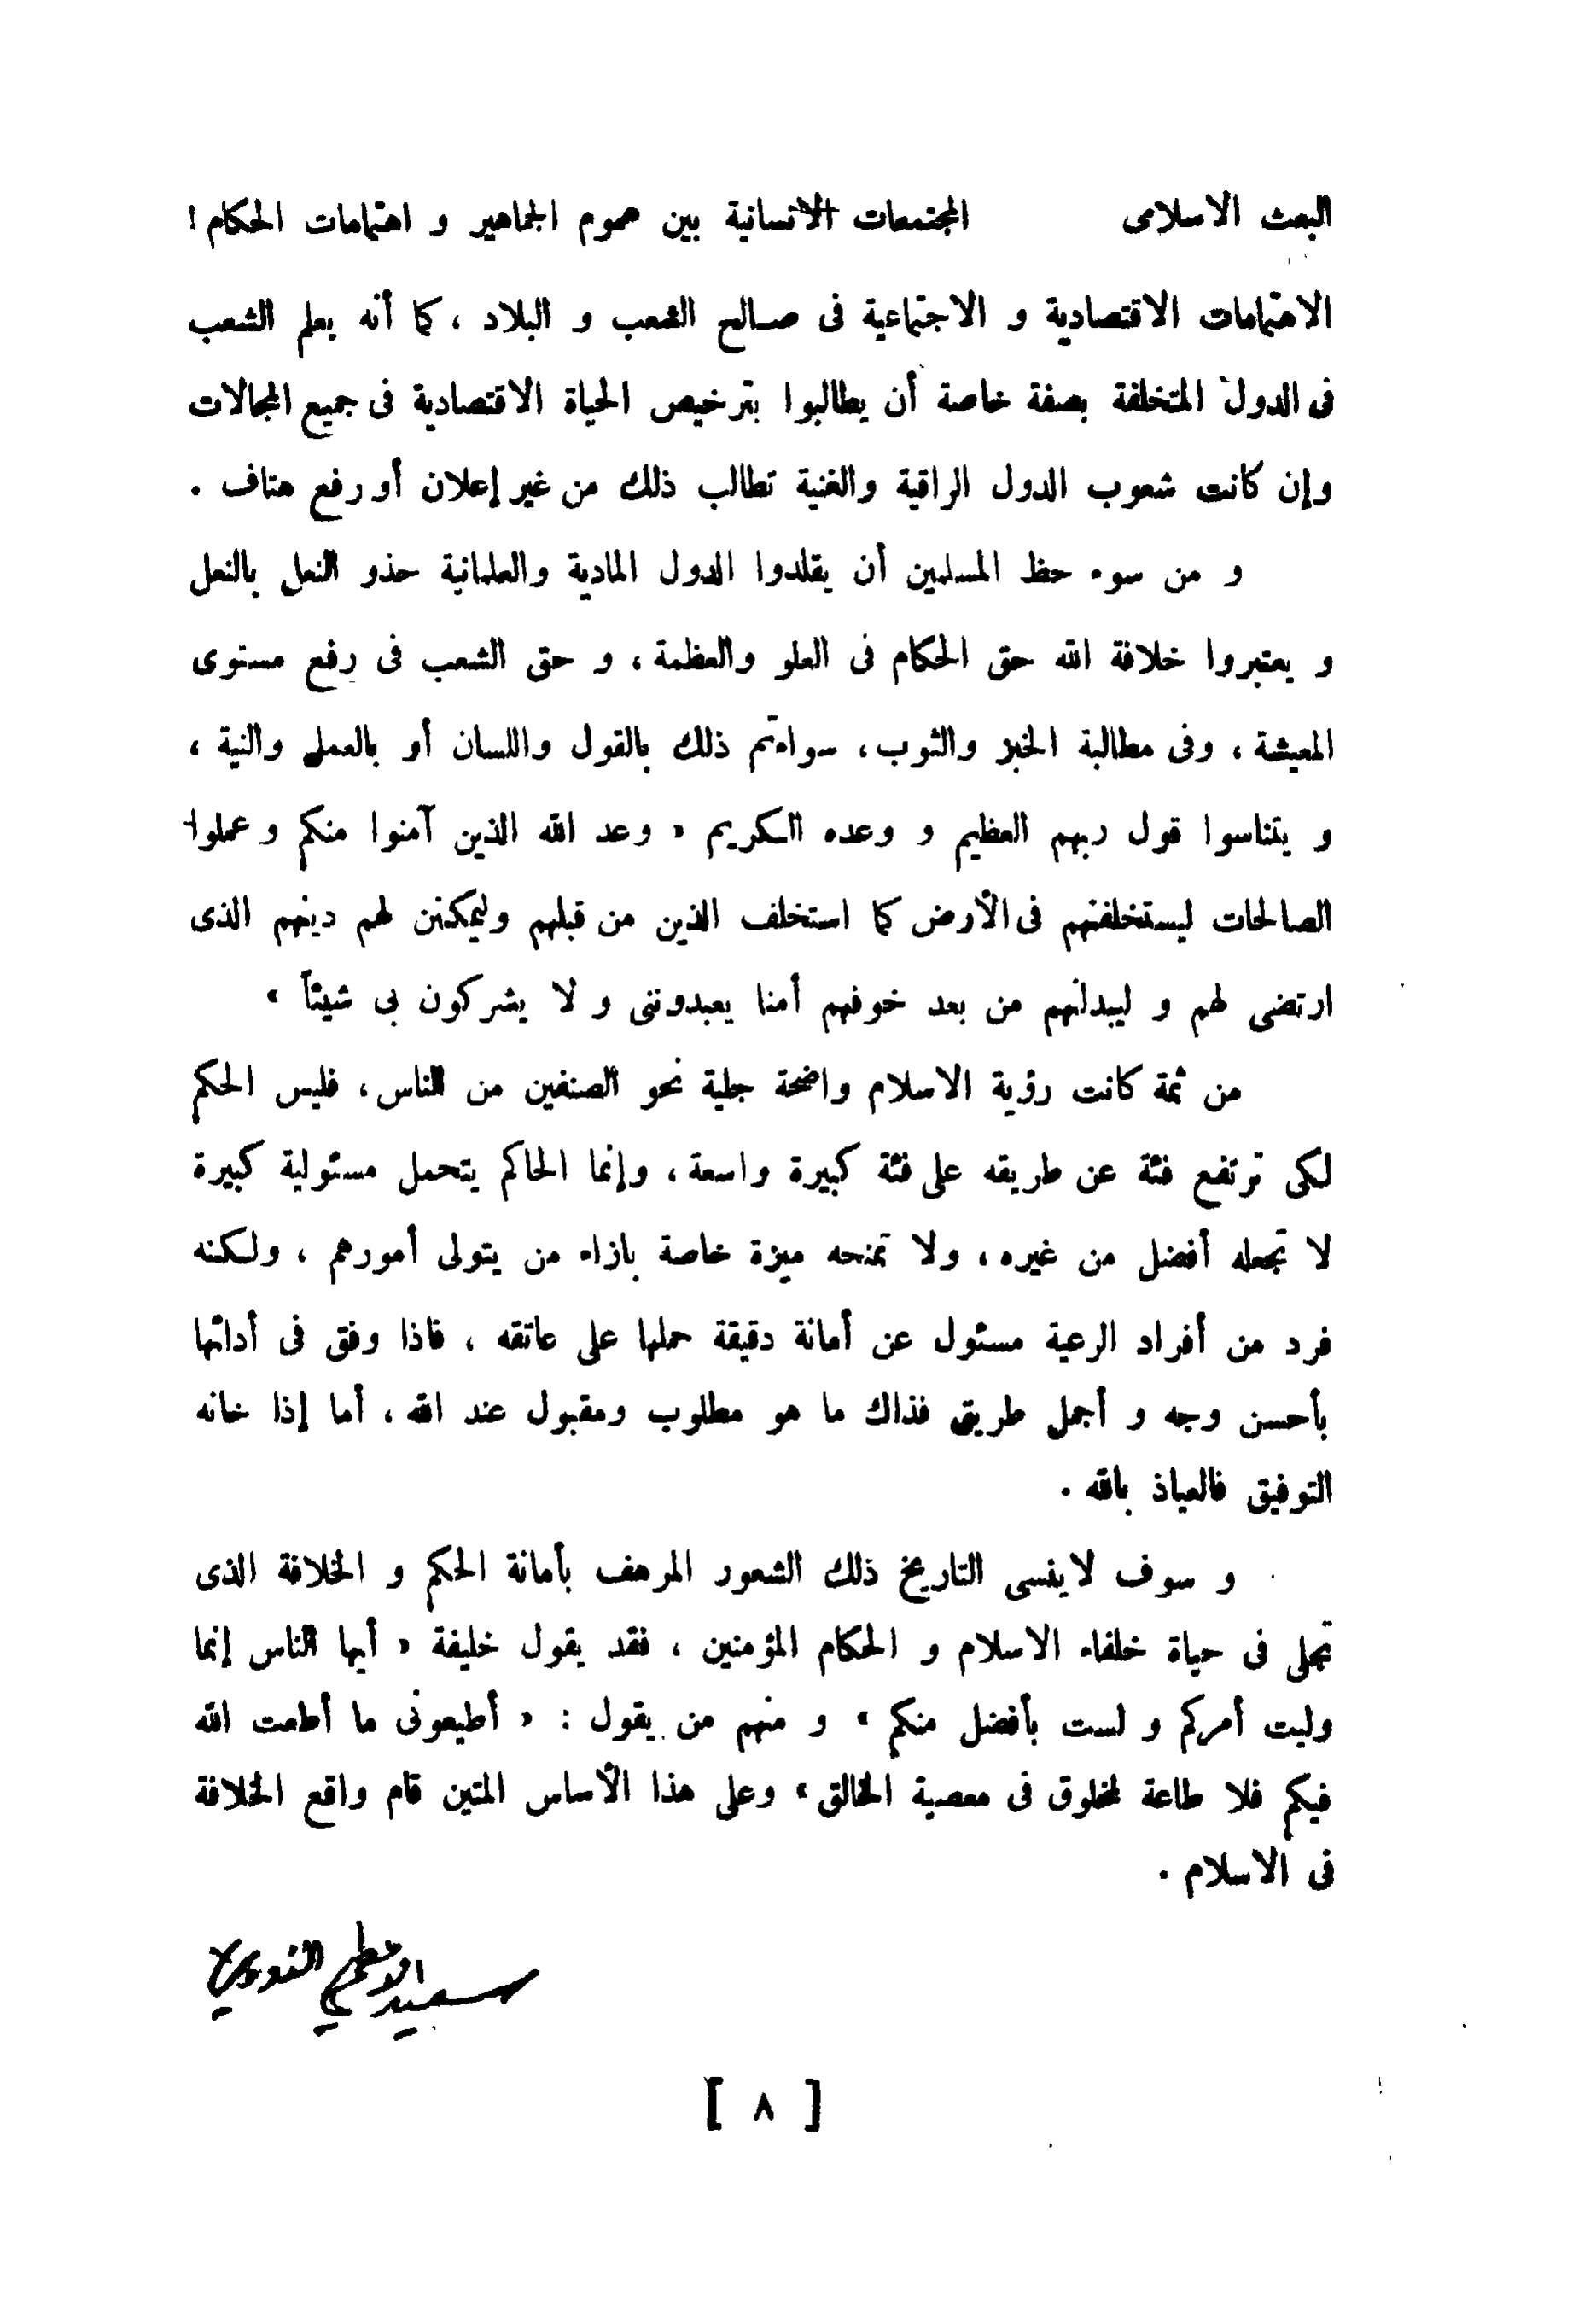 البعث الاسلامى المجتمعات الانسانية بين هموم الجماهير و اهتمامات الحكام !
الاهتمامات الاقتصادية و الاجتماعية فى صالح الشعب و البلاد ، كما أنه يعلم الشعب
فى الدول المتخلفة بصفة خاصة أن يطالبوا بترخيص الحياة الاقتصادية فى جميع المجالات
وإن كانت شعوب الدول الراقية والغنية تطالب ذلك من غير إعلان أو رفع هتاف .
و من سوء حظ المسلمين أن يقلدوا الدول المادية والعلمانية حذو النعل بالنعل
و يعتبروا خلافة الله حق الحكام فى العلو والعظمة ، و حق الشعب فى رفع مستوى
المعيشة ، وفى مطالبة الخبز والثوب ، سواء تم ذلك بالقول واللسان أو بالعمل والنية ،
و يتناسوا قول ربهم العظيم و وعده الكريم « وعد الله الذين آمنوا منكم و عملوا
الصالحات ليستخلفنهم فى الأرض كما استخلف الذين من قبلهم وليمكنن لهم دينهم الذى
ارتضى لهم و ليبدلنهم من بعد خوفهم أمنا يعبدوننى و لا يشركون بى شيئاً »
من ثمة كانت رؤية الاسلام واضحة جلية نحو الصنفين من الناس ، فليس الحكم
لكى ترتفع فئة عن طريقه على فئة كبيرة واسعة ، وإنما الحاكم يتحمل مسئولية كبيرة
لا تجعله أفضل من غيره ، ولا تمنحه ميزة خاصة بازاء من يتولى أمورهم ، ولكنه
فرد من أفراد الرعية مسئول عن أمانة دقيقة حملها على عاتقه ، فاذا وفق فى أدائها
بأحسن وجه و أجمل طريق فذاك ما هو مطلوب ومقبول عند الله ، أما إذا خانه
التوفيق فالعياذ بالله .
و سوف لاينسى التاريخ ذلك الشعور المرهف بأمانة الحكم و الخلافة الذى
تجلى فى حياة خلفاء الاسلام و الحكام المؤمنين ، فقد يقول خليفة « أيها الناس إنما
وليت أمركم و لست بأفضل منكم » و منهم من يقول : « أطيعونى ما أطعت الله
فيكم فلا طاعة لمخلوق فى معصية الخالق » وعلى هذا الأساس المتين قام واقع الخلافة
فى الاسلام .
سعيد الأعظمي الندوي
[ ٨ ]